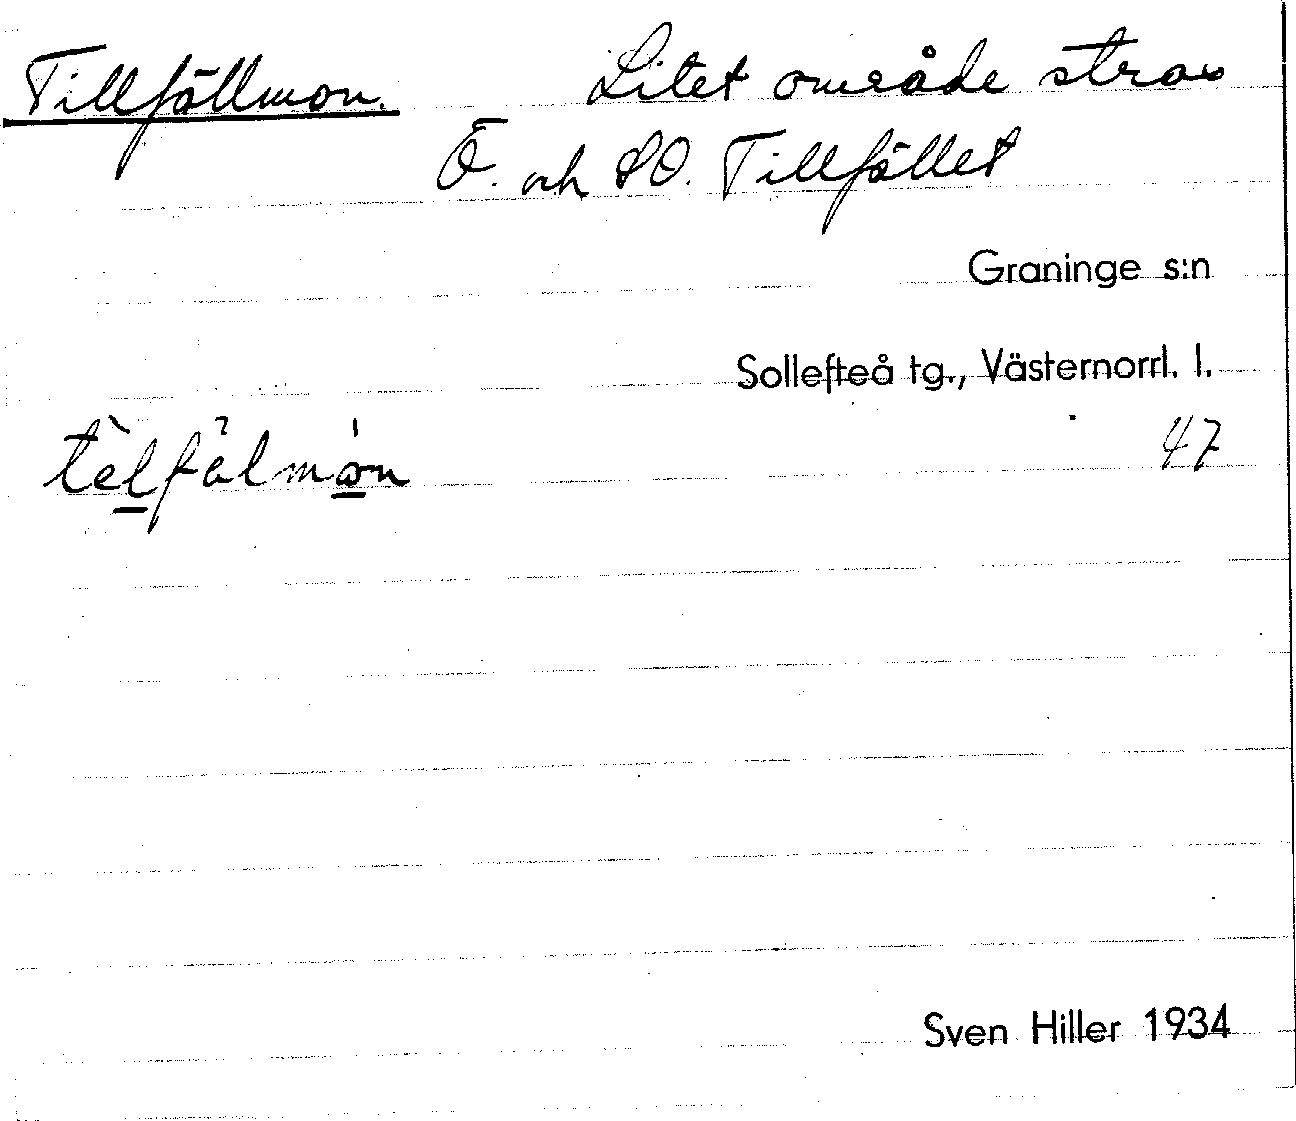 Tillfällmon. Litet område strax
Ö. och SO. Tillfället
Graninge s:n
Sollefteå tg., Västernorrl. l.
47
Sven Hiller 1934